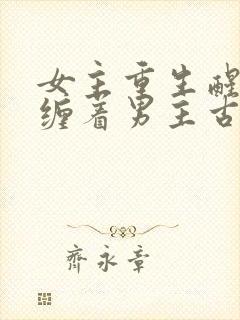 女主重生醒
缠着男主古
齊永章